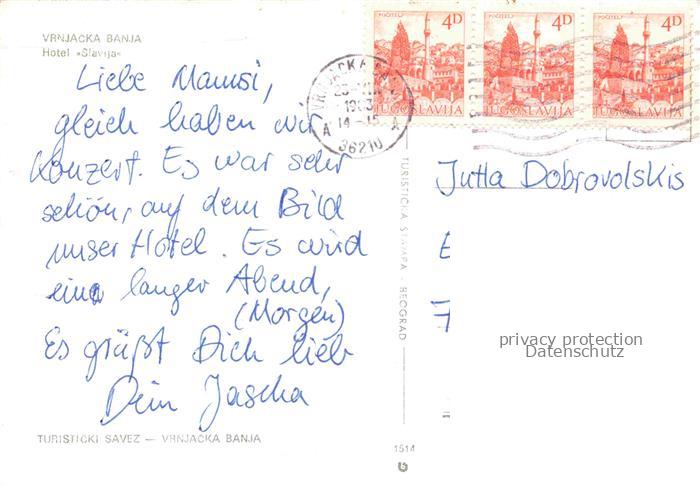 VRNJAČKA BANJA
Hotel »Slavija«
Liebe Mamsi,
gleich haben wir
Konzert. Es war sehr
schön, auf dem Bild
unser Hotel. Es wird
ein langer Abend,
(Morgen)
Es grüßt Dich lieb
Dein Jascha
TURISTIČKI SAVEZ — VRNJAČKA BANJA
POČITELJ 4D
JUGOSLAVIJA
POČITELJ 4D
JUGOSLAVIJA
POČITELJ 4D
JUGOSLAVIJA
14-15
A A
36210
TURISTIČKA ŠTAMPA - BEOGRAD
1514
Jutta Dobrovolskis
privacy protection
Datenschutz